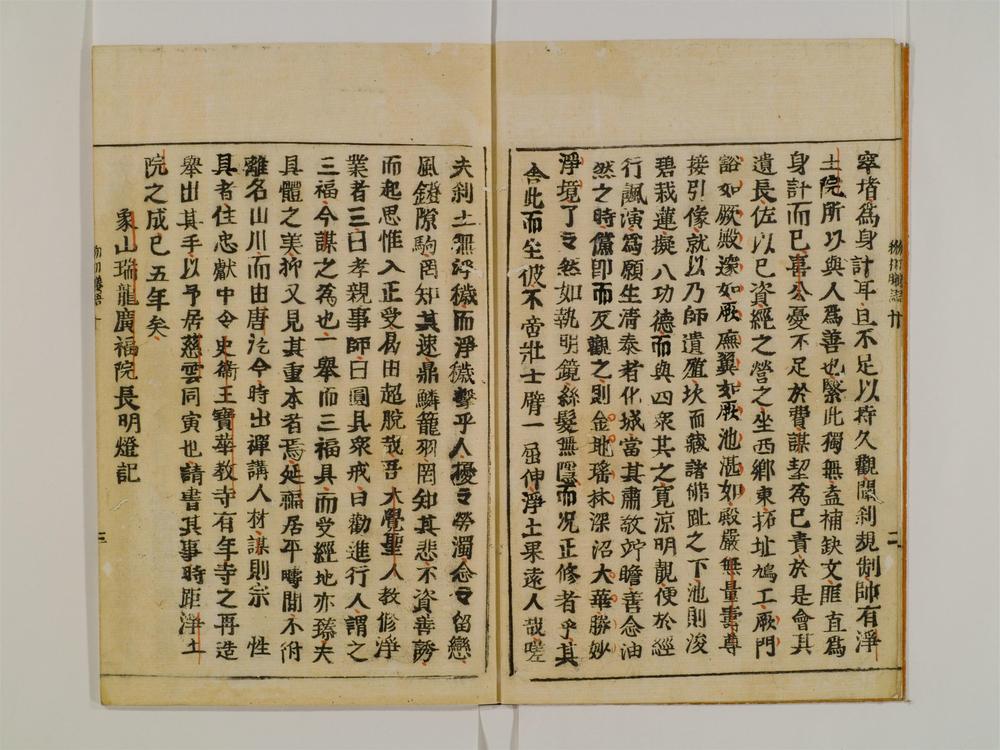 窣堵為身計耳且不足以持久觀閱剎規制師有淨
土院所以與人為善也緊此獨無盍補缺文匪直為
身計而已喜公憂不足於費謀契為已責於是會其
遺長佐以已資經之營之坐西鄉東拓址鳩工厥門
谽如厥殿濚如厥廡翼如厥池湛如殿嚴無量壽尊
接引像就以乃師遺殖坎而藏諸佛趾之下池則浚
碧栽蓮擬八功德而與四衆其之寛涼明靚便於經
行諷演為願生清泰者化城當其肅敬竚瞻善念油
然之時儻即而反觀之則金地瑤林深沼大華勝妙
淨境了了然如執明鏡絲髮無隱而况正修者乎其
舍此而坐彼不啻壯士臂一屈伸淨土果遠人哉嗟
夫刹土無淨穢而淨穢擊乎人擾々勞濁念々留戀
風鐙隙駒罔知其速鼎鱗籠羽罔知其悲不資善誘
而起思惟入正受曷由超脫哉吾大覺聖人教修淨
業者三曰孝親事師曰圓具衆戒曰勸進行人謂之
三福今謀之為也一舉而三福具而受經地亦臻夫
具體之美抑又見其重本者焉延福居平疇間不附
離名山川而由唐汔今時出禪講人材謀則宗 性
具者住忠獻中令史衞王寶華教寺有年寺之再造
舉出其手以予居慈雲同寅也請書其事時距淨土
院之成已五年矣
象山瑞龍廣福院長明燈記
二
三